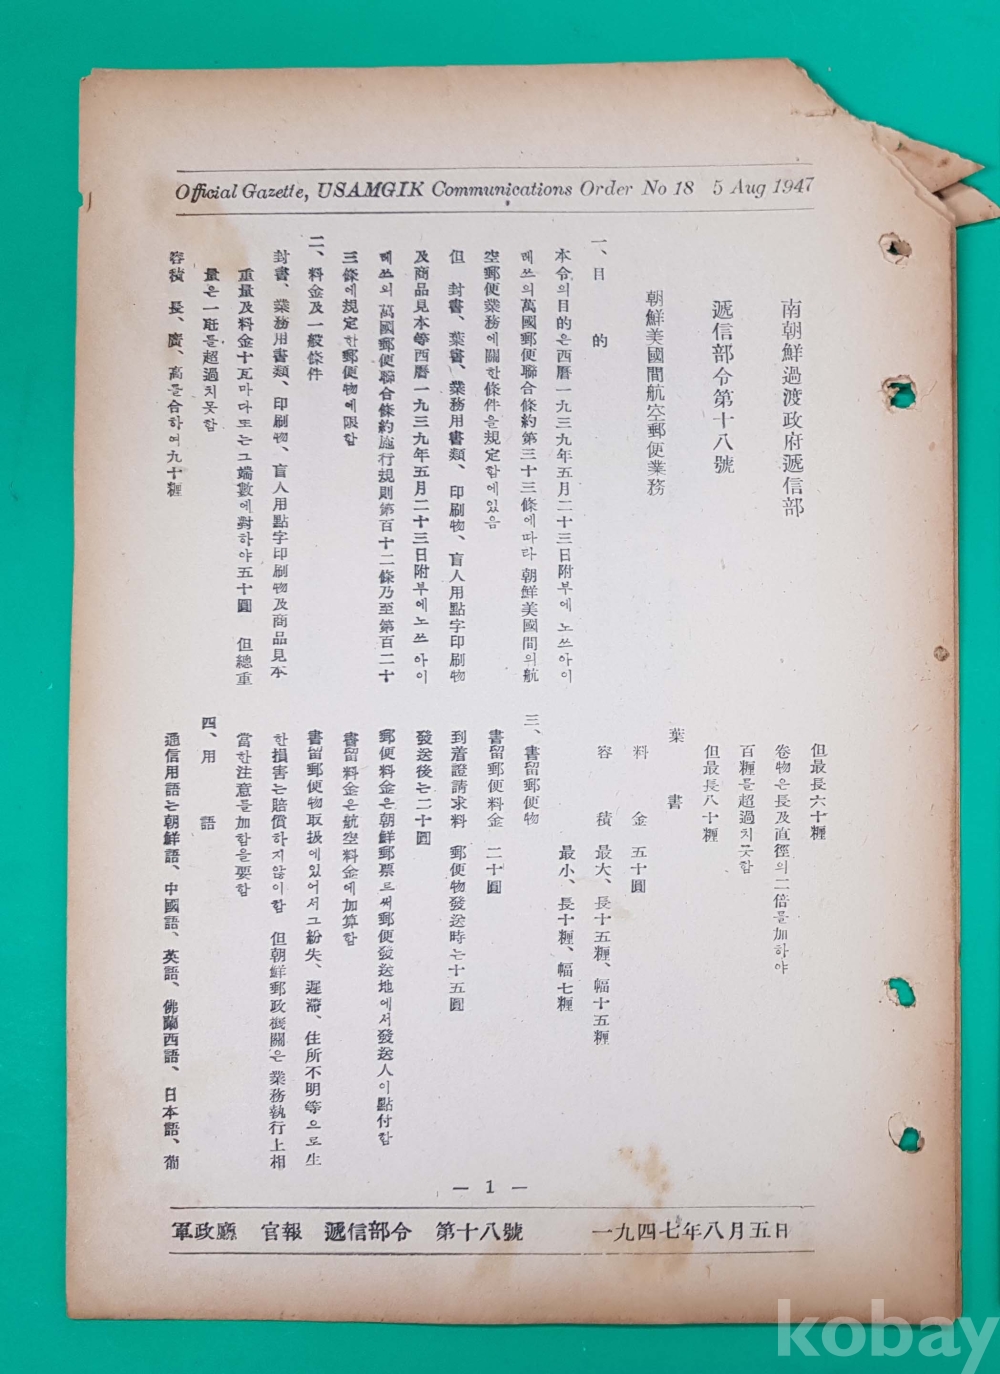 Official Gazette, USAMGIK Communications Order No 18 5 Aug 1947
南朝鮮過渡政府遞信部
遞信部令第十八號
朝鮮美國間航空郵便業務
一、目 的
本令의目的은西曆一九三九年五月二十三日附부에노쓰아이
레쓰의萬國郵便聯合條約第三十三條에따라朝鮮美國間의航
空郵便業務에關한條件을規定함에있음
但 封書、葉書、業務用書類、印刷物、盲人用點字印刷物
及商品見本等西曆一九三九年五月二十三日附부에노쓰아이
레쓰의萬國郵便聯合條約施行規則第百十二條乃至第百二十
三條에規定한郵便物에限함
二、料金及一般條件
封書、業務用書類、印刷物、盲人用點字印刷物及商品見本
重量及料金十瓦마다또는그端數에對하야五十圓 但總重
量은一瓩를超過치못함
容積 長、廣、高를合하여九十糎
但最長六十糎
卷物은長及直徑의二倍를加하야
百糎를超過치못함
但最長八十糎
葉 書
料 金 五十圓
容 積 最大、長十五糎、幅十五糎
最小、長十糎、幅七糎
三、書留郵便物
書留郵便料金 二十圓
到着證請求料 郵便物發送時는十五圓
發送後는二十圓
郵便料金은朝鮮郵票로써郵便發送地에서發送人이點付함
書留料金은航空料金에加算함
書留郵便物取扱에있어서그紛失、遲滯、住所不明等으로生
한損害는賠償하지않이함 但朝鮮郵政機關은業務執行上相
當한注意를加함을要함
四、用 語
通信用語는朝鮮語、中國語、英語、佛蘭西語、日本語、葡
— 1 —
軍政廳 官報 遞信部令 第十八號 一九四七年八月五日
kobay